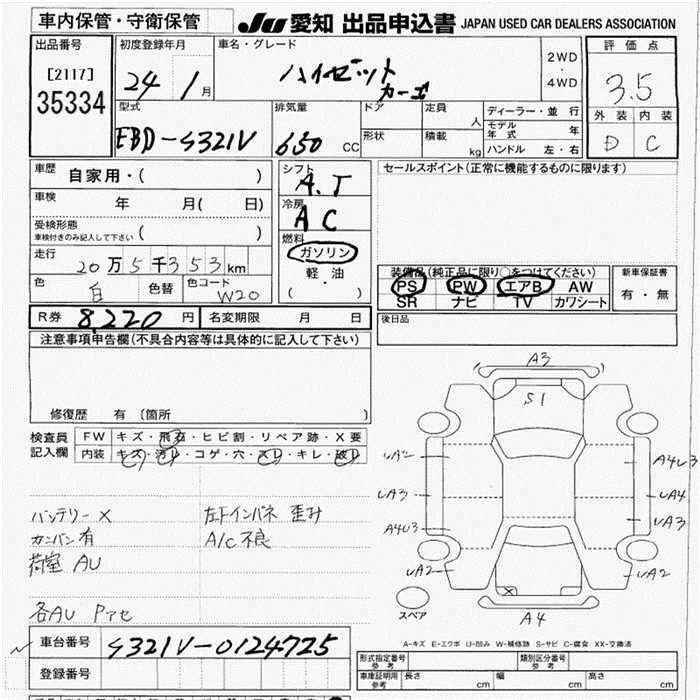 車内保管・守衛保管
JU 愛知 出品申込書 JAPAN USED CAR DEALERS ASSOCIATION
出品番号
[2117]
35334
初度登録年月
24 1 月
車名・グレード
ハイゼット
カーゴ
2WD
・
4WD
評価点
3.5
外装 内装
D C
型式
EBD-S321V
排気量
650 CC
ドア
形状
定員
人
積載
kg
ディーラー・並行
モデル
年式
年
ハンドル 左・右
車歴
自家用・( )
車検
年 月( 日)
受検形態
車検付きのみ記入して下さい ( )
走行
20万5千353km
色
白
色替
色コード
W20
シフト
A.T
冷房
AC
燃料
ガソリン
軽・油
( )
セールスポイント(正常に機能するものに限ります)
装備品(純正品に限り○をつけてください)
PS PW エアB AW
SR ナビ TV カワシート
新車保証書
有・無
R券 8,220 円
名変期限 月 日
後日品
注意事項申告欄(不具合内容等は具体的に記入して下さい)
修復歴 有 〔箇所 〕
検査員
記入欄
FW キズ・飛石・ヒビ割・リペア跡・X要
内装 キズ・汚れ・コゲ・穴・スレ・キレ・破れ
バッテリー X
カンバン有
荷室 AU
左Fインパネ 歪み
A/C 不良
各AU Pアセ
A3
S1
UA2
UA3
A4U3
UA2
A4U3
UA4
UA3
UA2
X
スペア
A4
A-キズ E-エクボ U-凹み W-補修跡 S-サビ C-腐食 XX-交換済
車台番号 S321V-0124725
登録番号
形式指定番号
参考
類別区分番号
参考
車庫証明用
参考
長さ cm 幅 cm 高さ cm